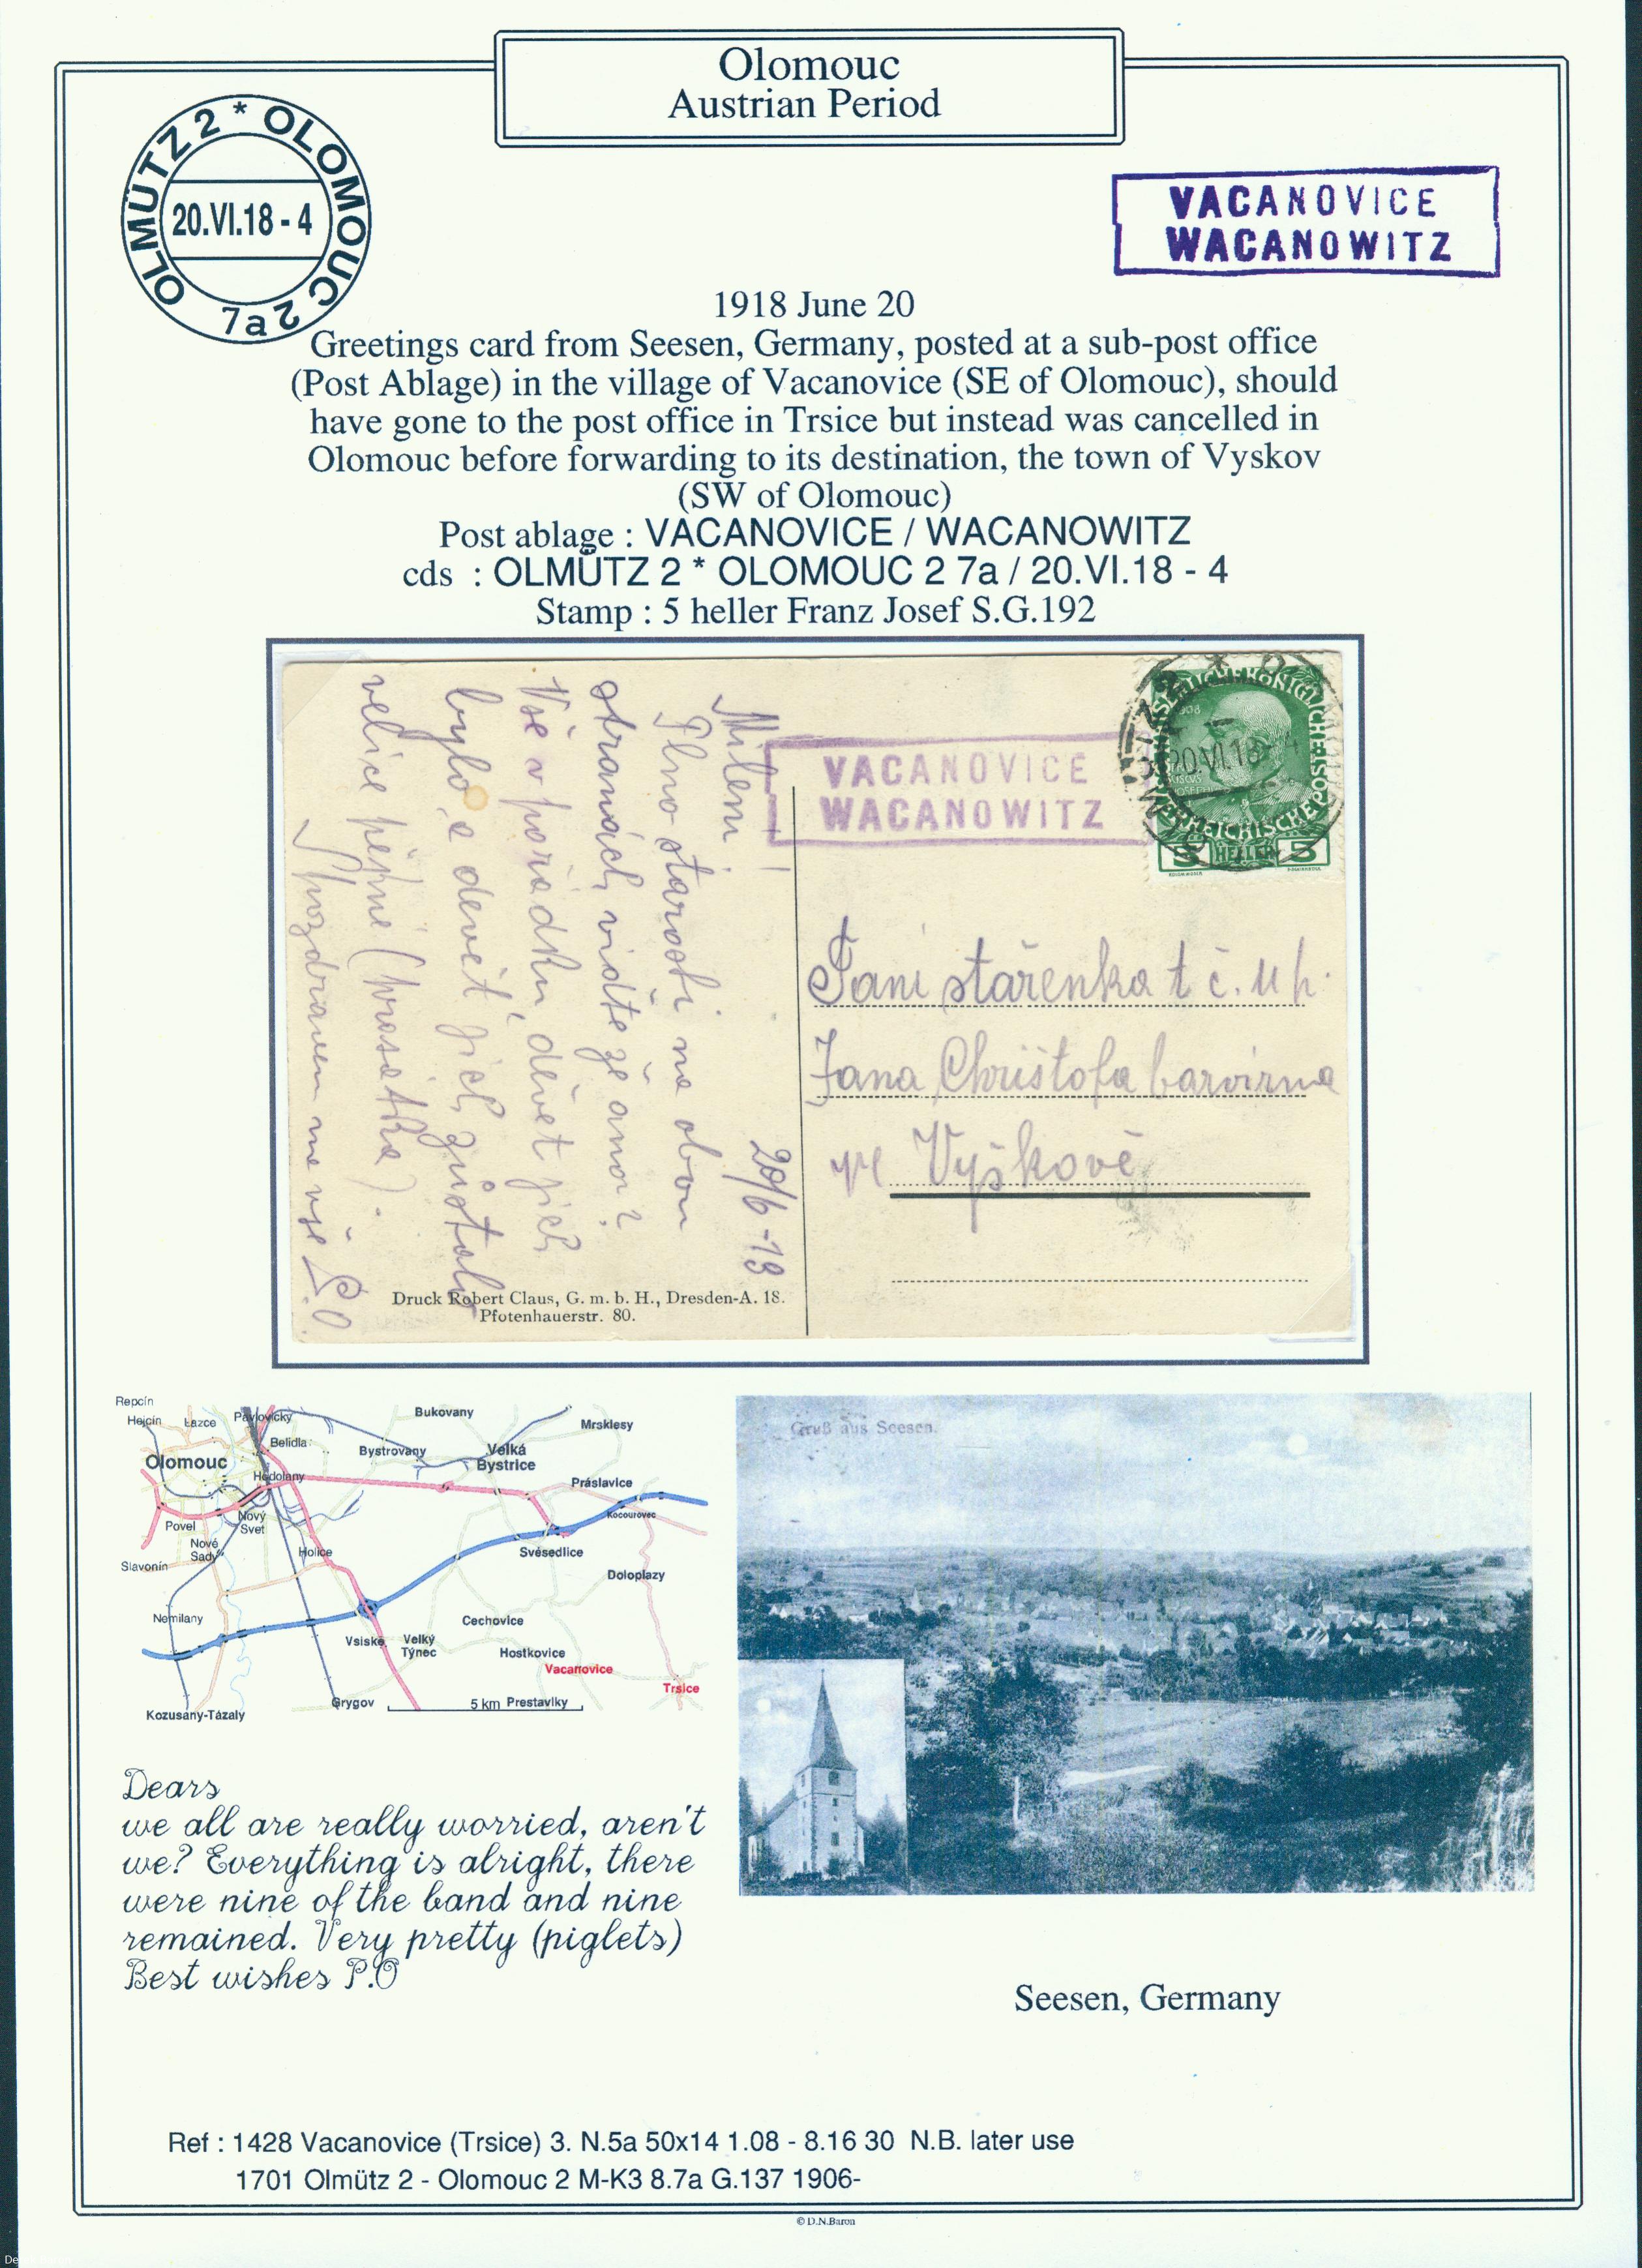 Olomouc
Austrian Period
OLMÜTZ 2 * OLOMOUC 2
20.VI.18 - 4
7a
VACANOVICE
WACANOWITZ
1918 June 20
Greetings card from Seesen, Germany, posted at a sub-post office
(Post Ablage) in the village of Vacanovice (SE of Olomouc), should
have gone to the post office in Trsice but instead was cancelled in
Olomouc before forwarding to its destination, the town of Vyskov
(SW of Olomouc)
Post ablage : VACANOVICE / WACANOWITZ
cds : OLMÜTZ 2 * OLOMOUC 2 7a / 20.VI.18 - 4
Stamp : 5 heller Franz Josef S.G.192
20/6 - 18
Milení!
Plno starosti na obou
stranách vidte že ano?
Vše v pořádku, děvet jich
bylo a devět jich zůstalo
velice pěkné (prasátka).
S pozdravem na vše P.O
Druck Robert Claus, G. m. b. H., Dresden-A. 18.
Pfotenhauerstr. 80.
VACANOVICE
WACANOWITZ
1908
20.VI.18 - 4
5 HELLER 5
Paní stařenka t č. u p.
Jana Christofa barvírna
ve Vyškově
Repcín
Hejcín
Lazce
Pavlovicky
Bukovany
Mrsklesy
Belidla
Bystrovany
Velká
Bystrice
Olomouc
Hodolany
Práslavice
Kocourovec
Povel
Nový
Svet
Nové
Sady
Holice
Svésedlice
Slavonín
Doloplazy
Nemilany
Cechovice
Vsiske
Velký
Týnec
Hostkovice
Vacanovice
Trsice
Grygov
5 km
Prestavlky
Kozusany-Tázaly
Gruß aus Seesen.
Dears
we all are really worried, aren't
we? Everything is alright, there
were nine of the band and nine
remained. Very pretty (piglets)
Best wishes P.O
Seesen, Germany
Ref : 1428 Vacanovice (Trsice) 3. N.5a 50x14 1.08 - 8.16 30 N.B. later use
1701 Olmütz 2 - Olomouc 2 M-K3 8.7a G.137 1906-
© D.N.Baron